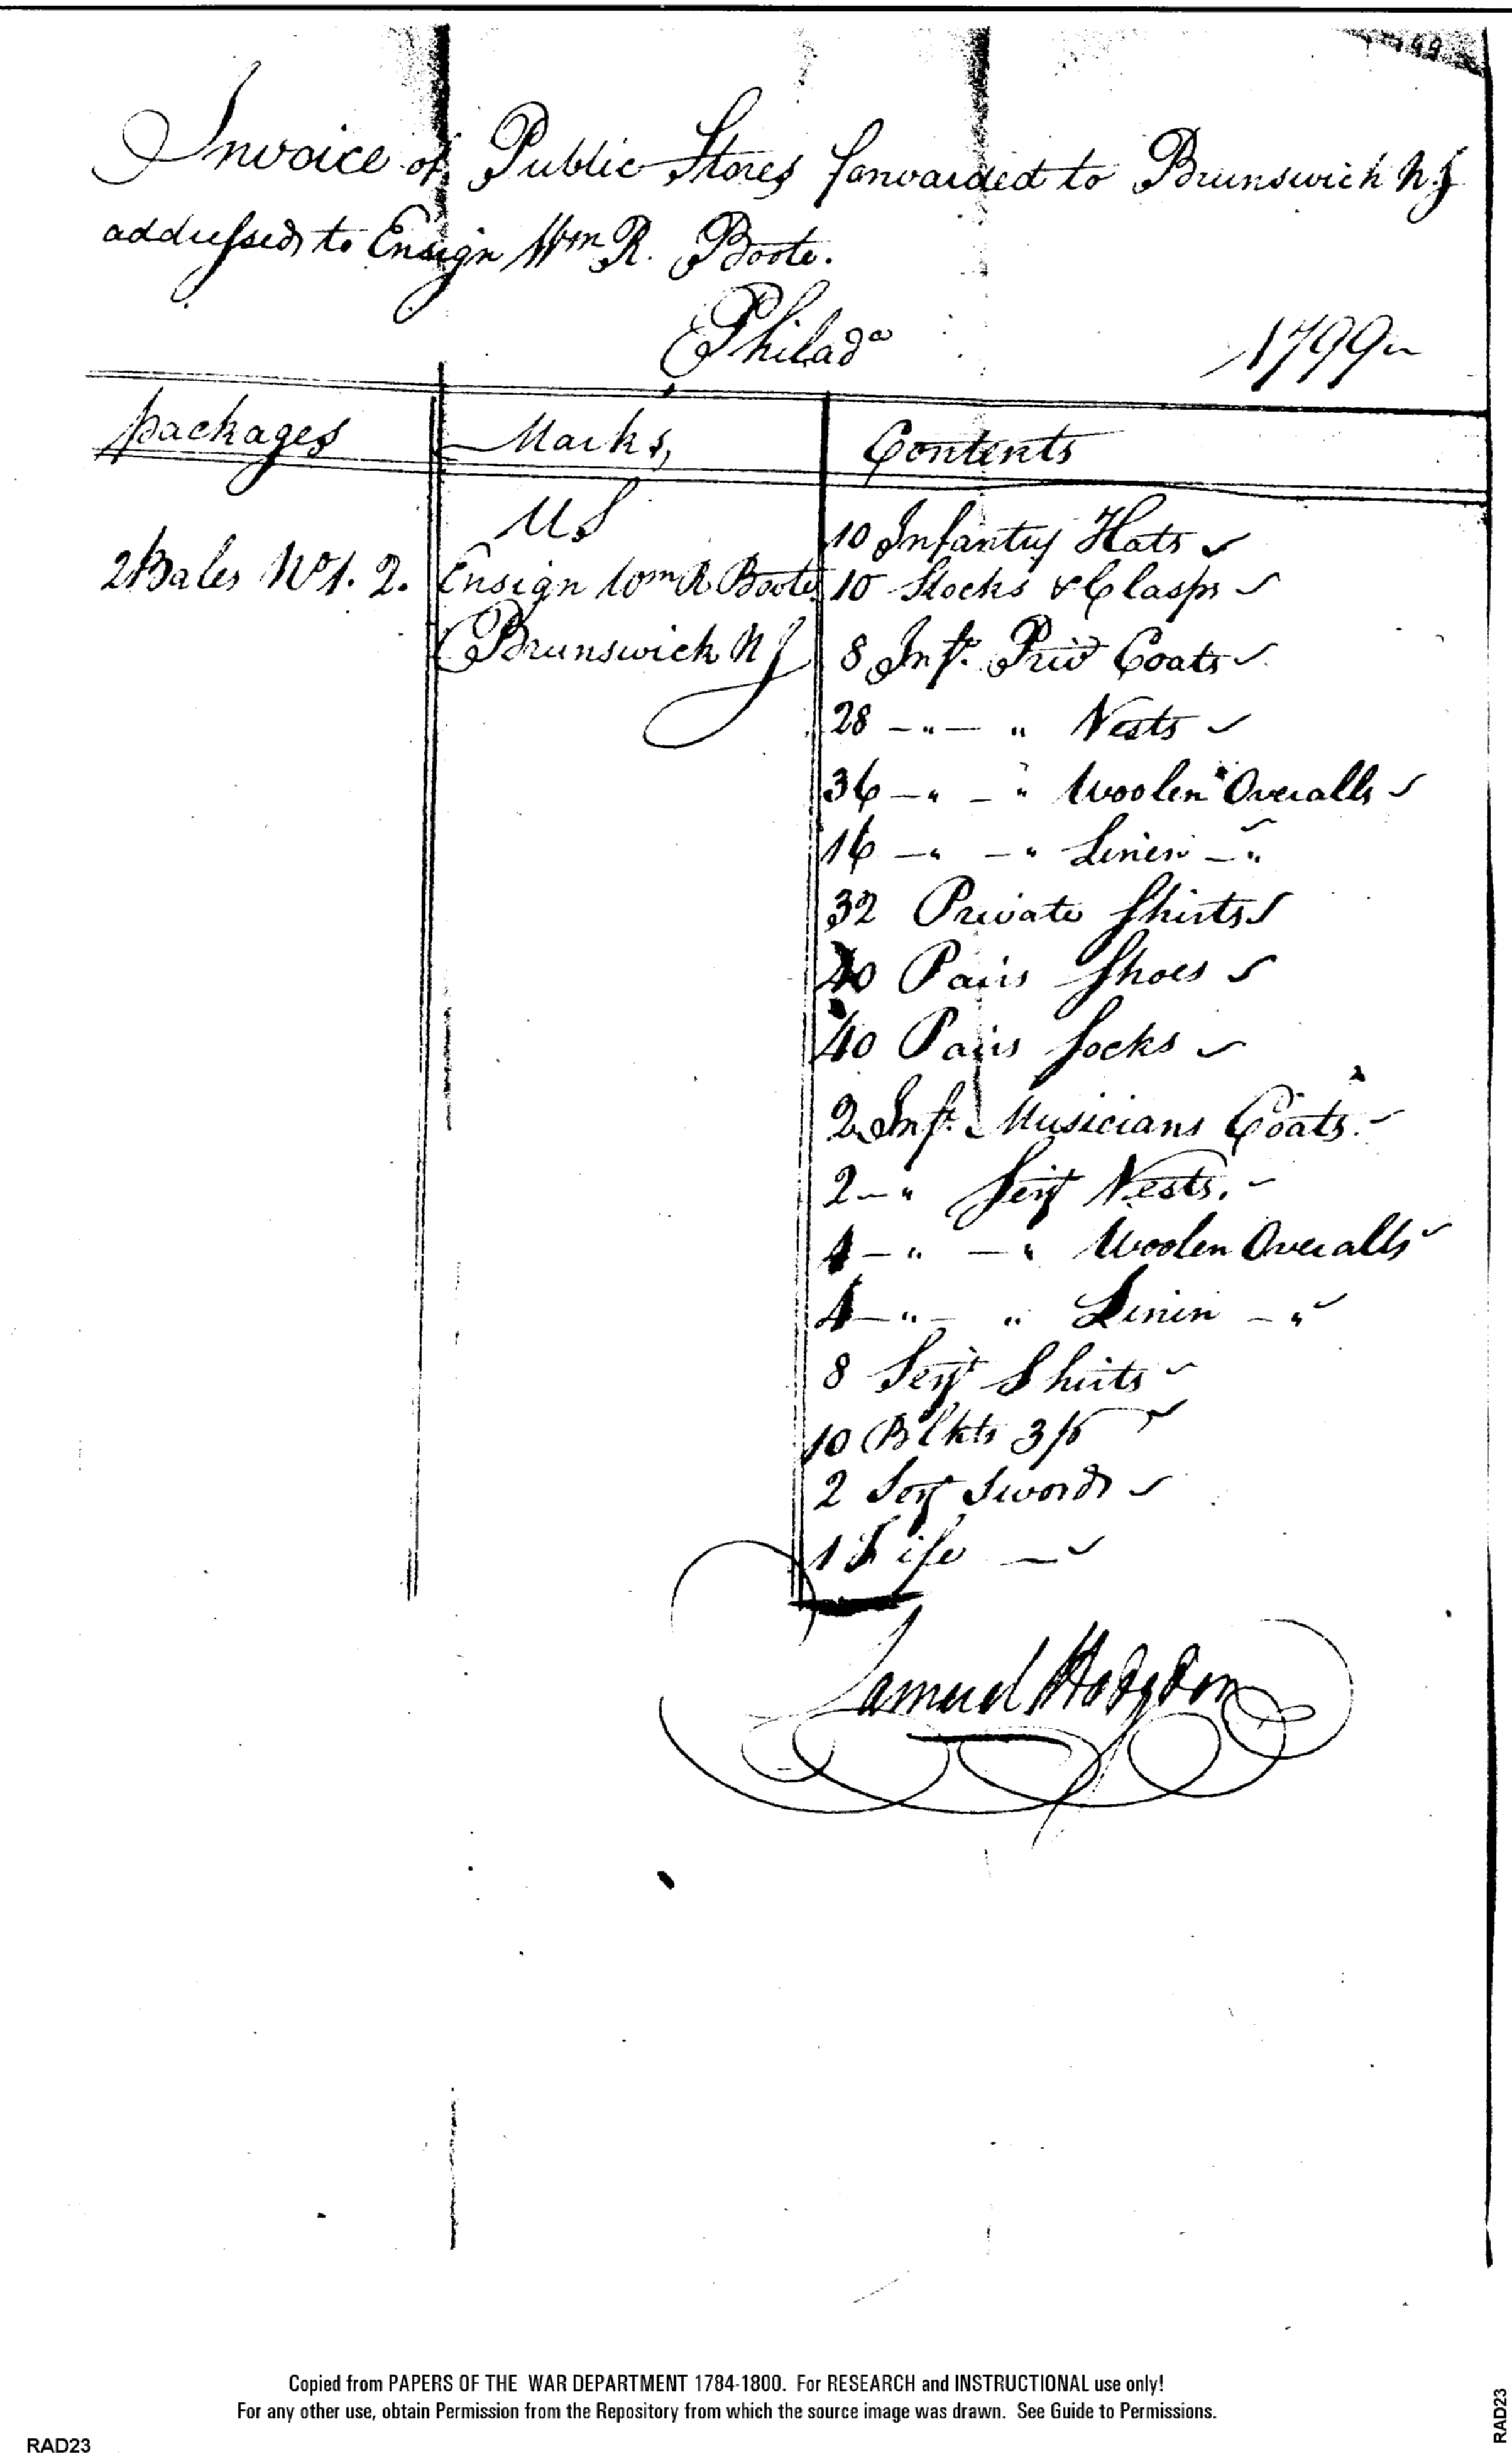 Invoice of Public Stores forwarded to Brunswick N.J
addressed to Ensign Wm R. Boote.
Philada 1799
packages Marks, Contents
US
2 Bales No 1. 2. Ensign Wm R Boote
Brunswick NJ
10 Infantry Hats ✓
10 Stocks & Clasps ✓
8 Inft. Privt Coats ✓
28 — " — " Vests ✓
36 — " — " Woolen Overalls ✓
16 — " — " Linen — " ✓
32 Private Shirts ✓
40 Pairs Shoes ✓
40 Pairs Socks ✓
2 Inft. Musicians Coats. ✓
2 — " Serjt Vests. ✓
4 — " — " Woolen Overalls ✓
4 — " — " Linen — " ✓
8 Serjt Shirts ✓
10 Blkts 3 pt ✓
2 Serjt Swords ✓
1 Fife — ✓
Samuel Hodgdon
Copied from PAPERS OF THE WAR DEPARTMENT 1784-1800. For RESEARCH and INSTRUCTIONAL use only!
For any other use, obtain Permission from the Repository from which the source image was drawn. See Guide to Permissions.
RAD23
RAD23